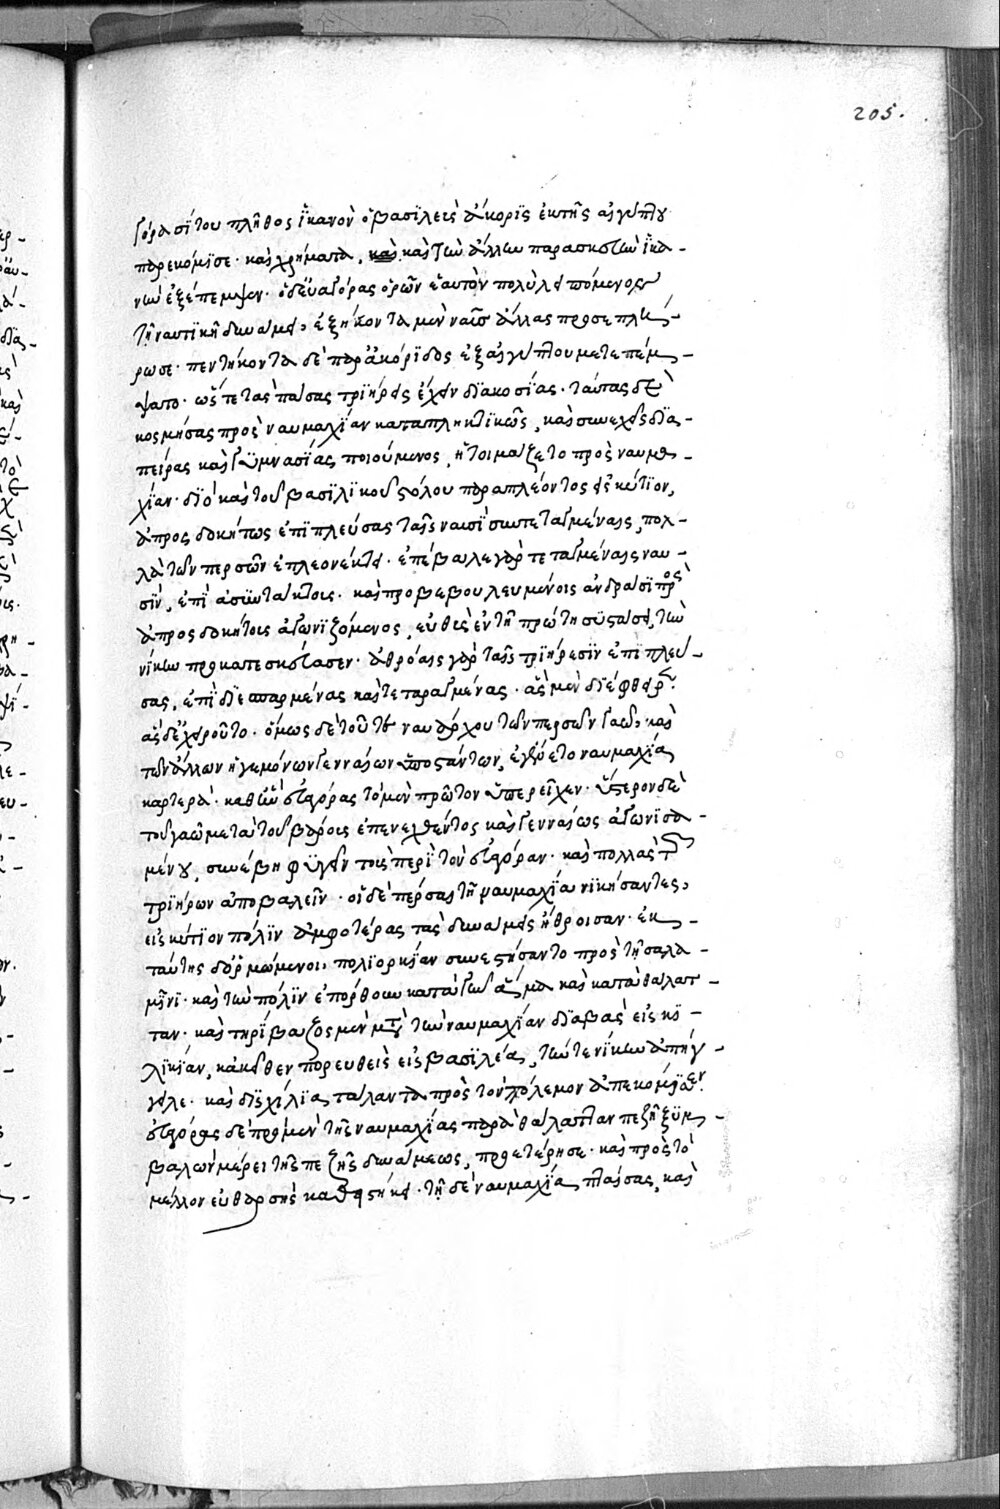 205.
γόρα σίτου πλῆθος ἱκανὸν ὁ βασιλεὺς ἄκορις ἐκ τῆς αἰγύπτου
παρεκόμισε· καὶ χρήματα, καὶ καὶ τῶν ἄλλων παρασκευῶν ἱκα-
νῶν ἐξέπεμψεν· ὁ δ' εὐαγόρας ὁρῶν ἑαυτὸν πολὺ λειπόμενος
τῇ ναυτικῇ δυνάμει, ἑξήκοντα μὲν ναῦς ἄλλας προσεπλή-
ρωσε· πεντήκοντα δὲ παρ' ἀκόριδος ἐξ αἰγύπτου μετεπέμ-
ψατο· ὥστε τὰς πάσας τριήρεις ἔχειν διακοσίας· ταύτας δὲ
κοσμήσας πρὸς ναυμαχίαν καταπληκτικῶς, καὶ συνεχεῖς δια-
πείρας καὶ γυμνασίας ποιούμενος, ἡτοιμάζετο πρὸς ναυμα-
χίαν· διὸ καὶ τοῦ βασιλικοῦ στόλου παραπλέοντος εἰς κύτιον,
ἀπροσδοκήτως ἐπιπλεύσας ταῖς ναυσὶ συντεταγμέναις, πολ-
λὰ τῶν περσῶν ἐπλεονέκτει· ἐπέβαλε γὰρ τεταγμέναις ναυ-
σὶν, ἐπὶ ἀσυντάκτοις· καὶ προβεβουλευμένοις ἀνδράσι πρὸς
ἀπροσδοκήτοις ἀγωνιζόμενος, εὐθὺς ἐν τῇ πρώτῃ συστάσει, τὴν
νίκην προκατεσκεύασεν· ἀθρόαις γὰρ ταῖς τριήρεσιν ἐπιπλεύ-
σας, ἐπὶ διεσπαρμένας καὶ τεταραγμένας· ἃς μὲν διέφθειρε·
ἃς δ' ἐχειροῦτο· ὅμως δὲ τοῦ τε ναυάρχου τῶν περσῶν γαὼ, καὶ
τῶν ἄλλων ἡγεμόνων γενναίων ὑποστάντων, ἐγένετο ναυμαχία
καρτερά· καθ' ἣν εὐαγόρας τὸ μὲν πρῶτον ὑπερεῖχεν· ὕστερον δὲ
τοῦ γαὼ μετὰ τοῦ βάρους ἐπενεχθέντος καὶ γενναίως ἀγωνισα-
μένου, συνέβη φυγεῖν τοὺς περὶ τὸν εὐαγόραν· καὶ πολλὰς τῶν
τριήρων ἀποβαλεῖν· οἱ δὲ πέρσαι τῇ ναυμαχίᾳ νικήσαντες,
εἰς κύτιον πόλιν ἀμφοτέρας τὰς δυνάμεις ἤθροισαν· ἐκ
ταύτης δ' ὁρμώμενοι, πολιορκίαν συνεστήσαντο πρὸς τῇ σαλα-
μῖνι· καὶ τὴν πόλιν ἐπόρθουν κατὰ γῆν ἅμα καὶ κατὰ θάλατ-
ταν· καὶ τηρίβαζος μὲν μετὰ τὴν ναυμαχίαν διαβὰς εἰς κι-
λικίαν, κἀκεῖθεν πορευθεὶς εἰς βασιλέα, τήν τε νίκην ἀπήγ-
γειλε· καὶ δισχίλια τάλαντα πρὸς τὸν πόλεμον ἀπεκόμισεν·
εὐαγόρας δὲ πρὸ μὲν τῆς ναυμαχίας παρὰ θάλατταν πεζῇ ξυμ-
βαλὼν μέρει τῆς πεζῆς δυνάμεως, προετέρησε· καὶ πρὸς τὸ
μέλλον εὐθαρσὴς καθειστήκει· τῇ δὲ ναυμαχίᾳ πταίσας, καὶ